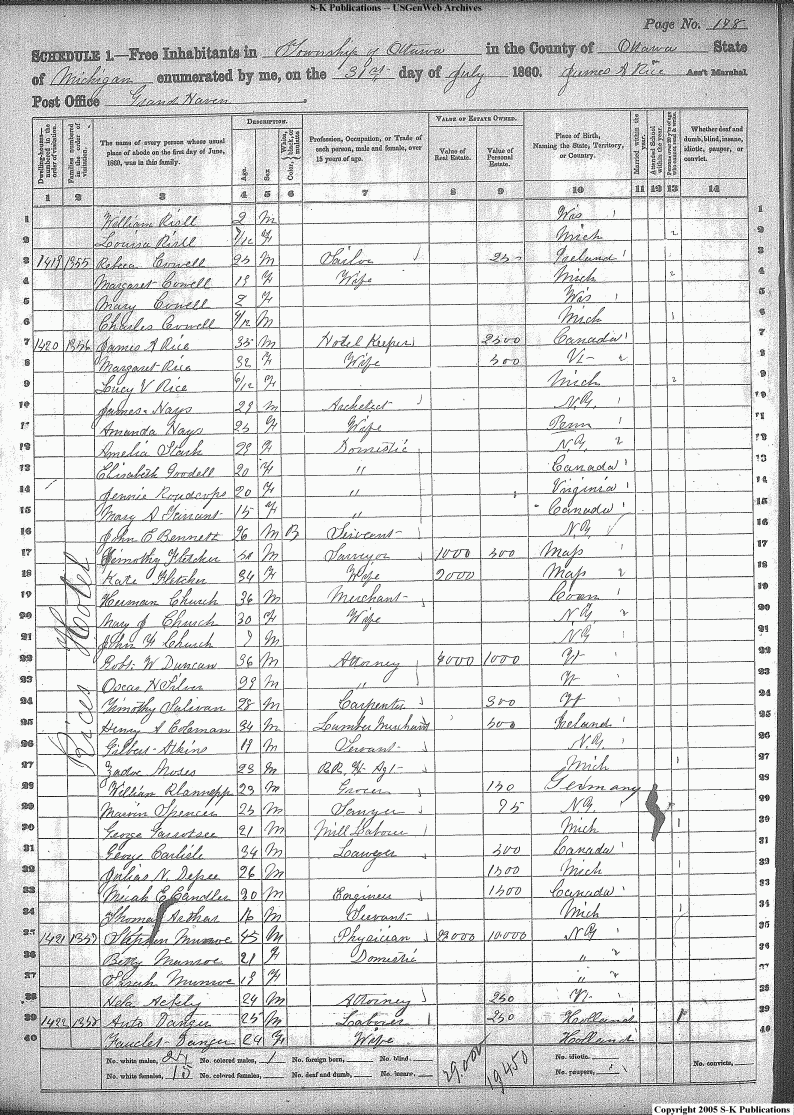 S-K Publications -- USGenWeb Archives
Page No. 188
SCHEDULE 1.—Free Inhabitants in Township of Ottawa in the County of Ottawa State
of Michigan enumerated by me, on the 31st day of July 1860. James A Rice Ass't Marshal
Post Office Grand Haven
Dwelling-houses—numbered in the order of visitation.
Families numbered in the order of visitation.
The name of every person whose usual place of abode on the first day of June, 1860, was in this family.
DESCRIPTION.
Age.
Sex
Color, White, black, or mulatto
Profession, Occupation, or Trade of each person, male and female, over 15 years of age.
VALUE OF ESTATE OWNED.
Value of Real Estate.
Value of Personal Estate.
Place of Birth, Naming the State, Territory, or Country.
Married within the year.
Attended School within the year.
Whether deaf and dumb, blind, insane, idiotic, pauper, or convict.
1 2 3 4 5 6 7 8 9 10 11 12 13 14
1 William 2 M Wis 1
2 Louisa F Mich 2
3 1419 1355 Cowell 25 M Sailor 25 Ireland 3
4 Margaret Cowell 19 F Wife Mich 4
5 Mary Cowell 2 F Wis 5
6 Charles Cowell M Mich 6
7 1420 1356 James A Rice 35 M Hotel Keeper 2500 Canada 7
8 Margaret Rice 32 F Wife 500 Vt 8
9 Lucy V Rice 6/12 F Mich 9
10 James Nays 29 M Architect N.Y. 10
11 Amanda Nays 25 F Wife Penn 11
12 Amelia Stark 29 F Domestic N.Y. 12
13 Elisabeth Goodell 20 F " Canada 13
14 Jennie 20 F " Virginia 14
15 Mary A 15 F " Canada 15
16 John E Bennett 26 M B Servant N.Y. 16
17 Timothy Fletcher M Surveyor 1000 500 Mass 17
18 Kate Fletcher 34 F Wife 2000 Mass 18
19 Herman Church 36 M Merchant Conn 19
20 Mary J Church 30 F Wife N.Y. 20
21 John H Church M N.Y. 21
22 Robt W Duncan 36 M Attorney 4000 1000 Vt 22
23 Oscar H Silver 29 M " Vt 23
24 Timothy Sulivan 28 M Carpenter 300 24
25 Henry S Coleman 34 M Lumber Merchant 500 Ireland 25
26 Gilbert Atkins 19 M Servant N.Y. 26
27 Zadoc 23 M R.R. Agt Mich 27
28 William 29 M Grocer 150 Germany 28
29 Marvin Spencer 25 M Sawyer 75 N.Y. 29
30 George 21 M Mill Labour Mich 30
31 George Carlisle 34 M Lawyer 300 Canada 31
32 26 M 1500 Mich 32
33 Micah E Candler 30 M Engineer 1500 Canada 33
34 Thomas Arthur 16 M Servant Mich 34
35 1421 1357 Stephen Munroe 45 M Physician 22000 10.000 N.Y. 35
36 Betty Munroe 21 F Domestic " 36
37 Sarah Munroe 19 F " 37
38 24 M Attorney 250 38
39 1422 1358 25 M Laborer 250 Holland 39
40 24 F Wife Holland 40
Rices Hotel
No. white males, 24 No. colored males, 1 No. foreign born, No. blind, 29.000 19450 No. idiotic, No. convicts,
No. white females, 15 No. colored females, No. deaf and dumb, No. insane, No. paupers,
Copyright 2005 S-K Publications